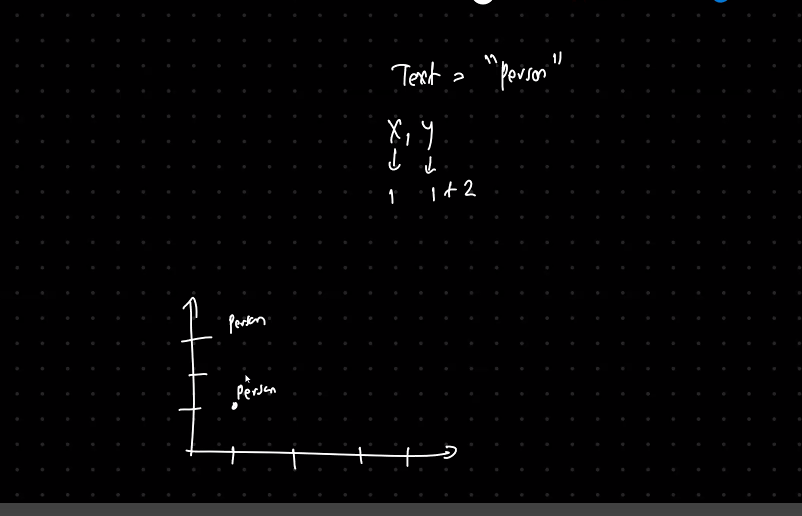 Text = "person"
x, y
↓ ↓
1 1 + 2
person
person